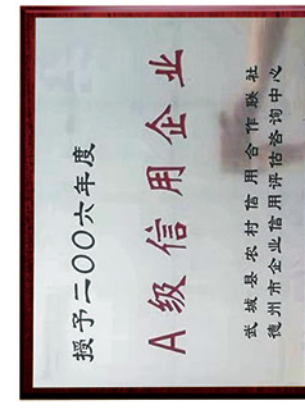 授予二〇〇六年度
A级信用企业
武城县农村信用合作联社
德州市企业信用评估咨询中心